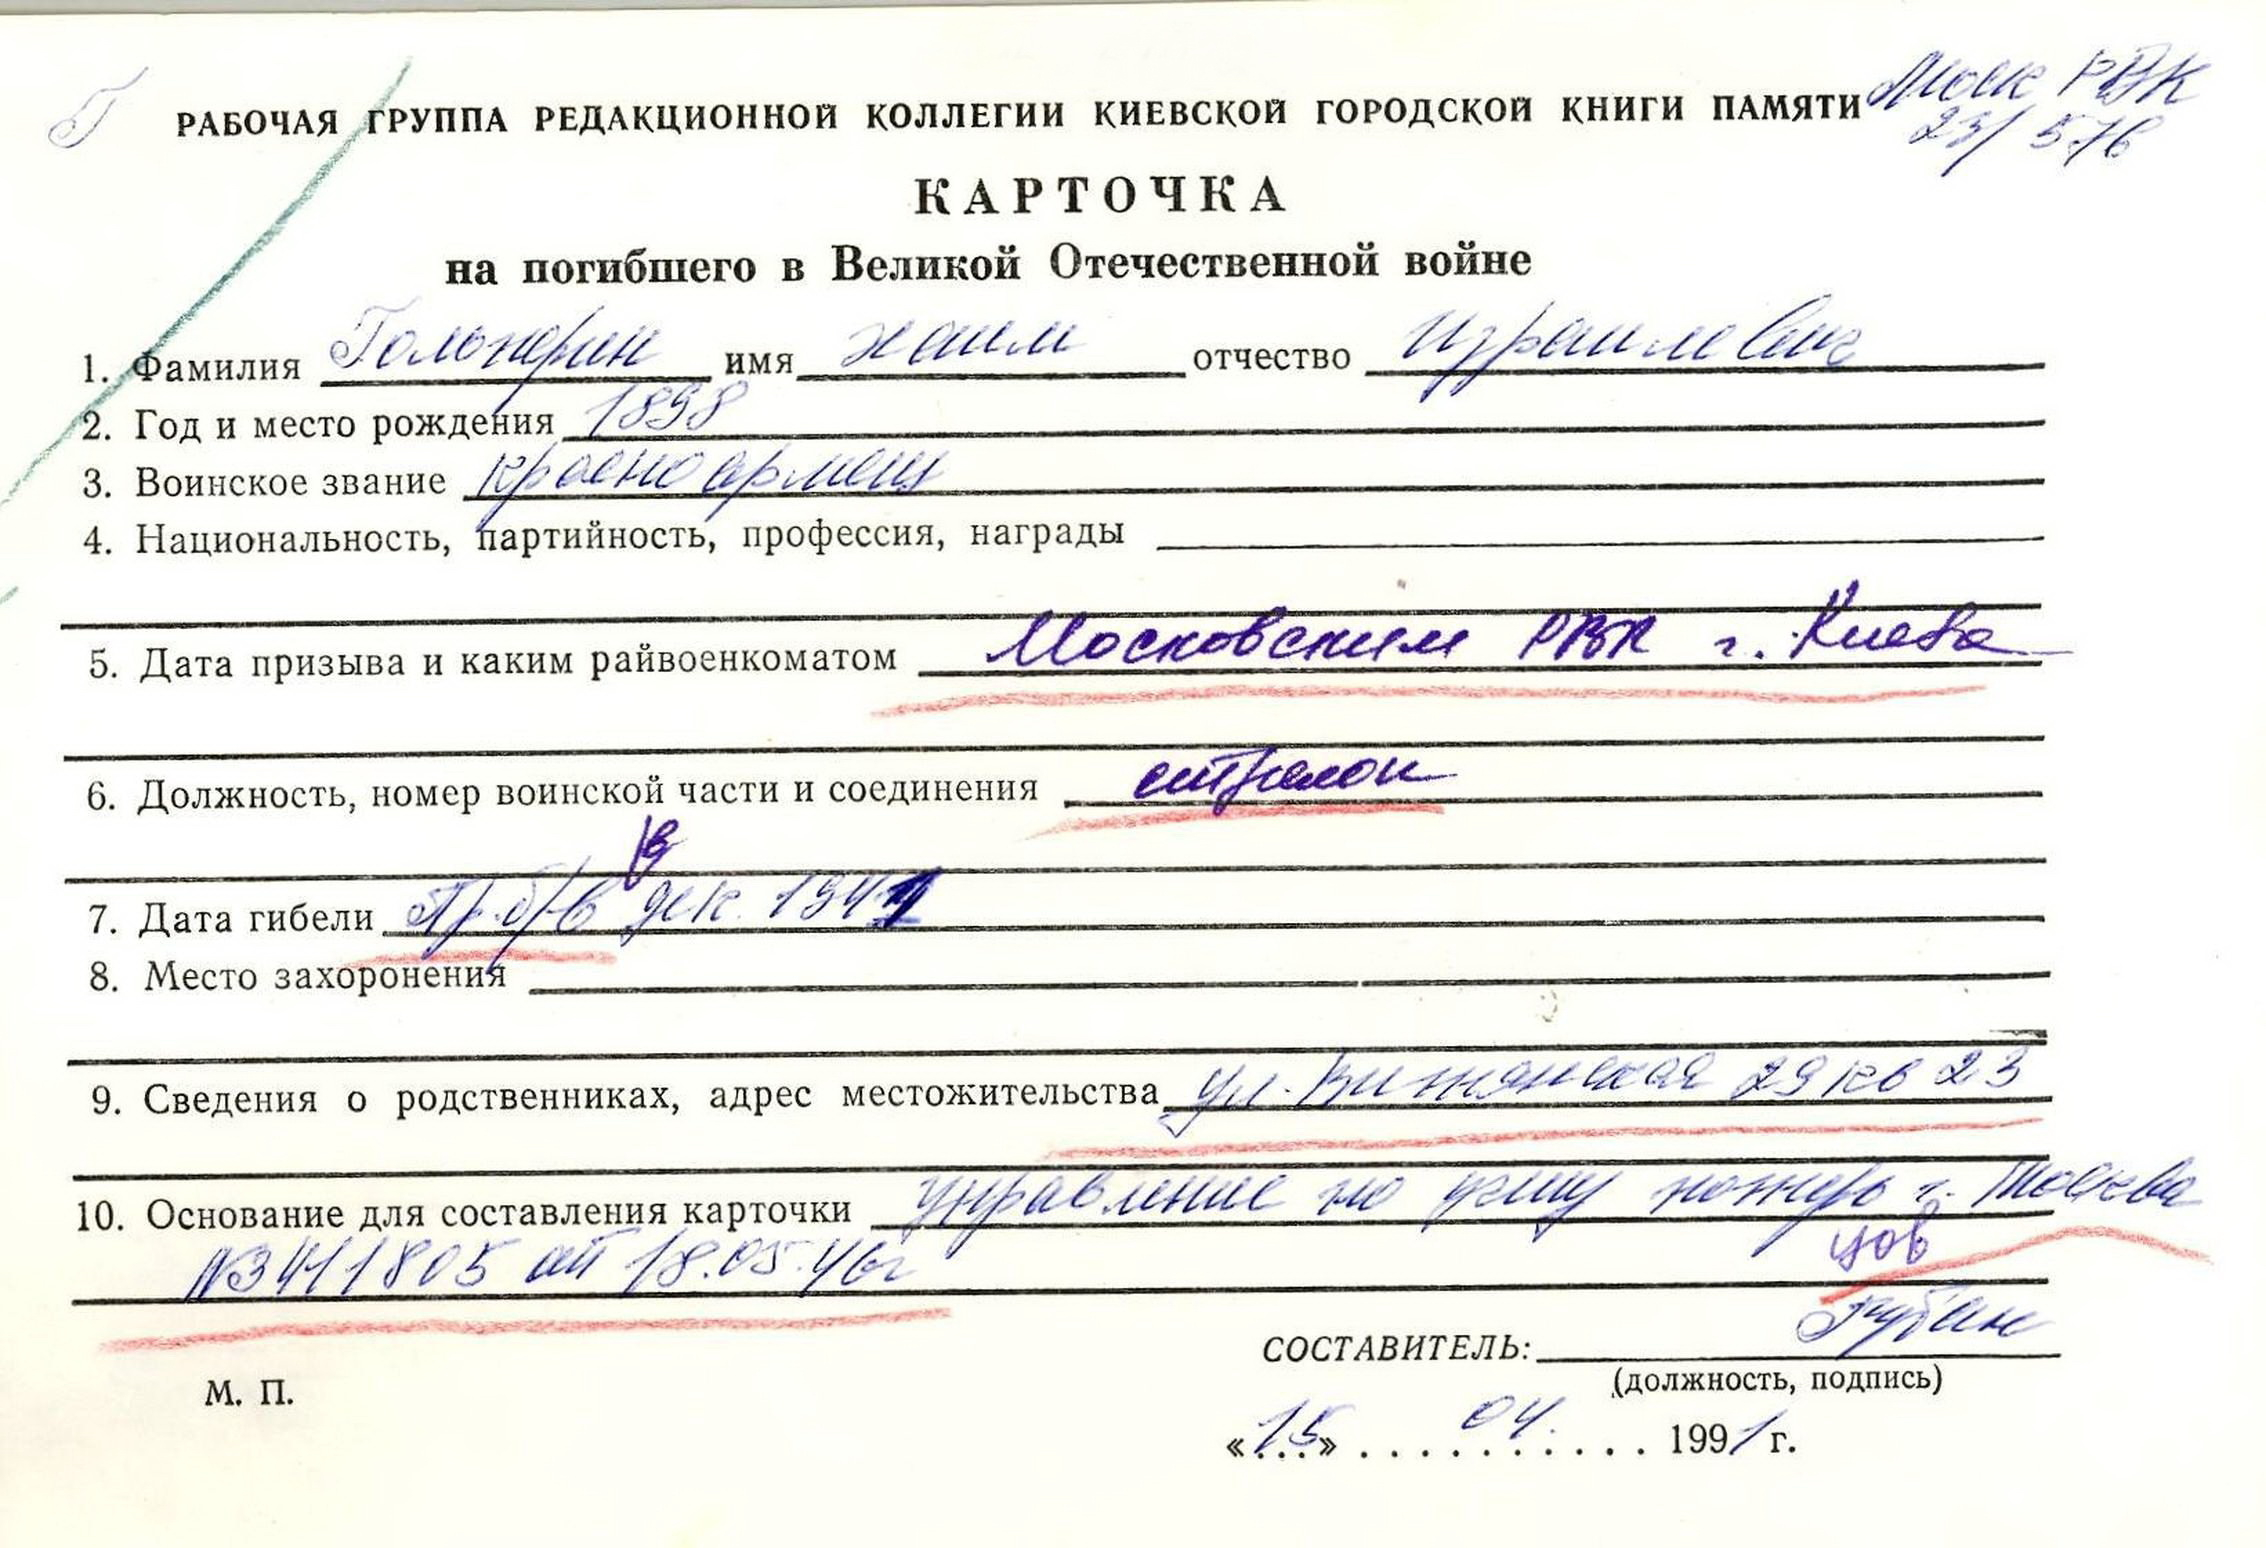 Г
Моск РВК
23/576
РАБОЧАЯ ГРУППА РЕДАКЦИОННОЙ КОЛЛЕГИИ КИЕВСКОЙ ГОРОДСКОЙ КНИГИ ПАМЯТИ
КАРТОЧКА
на погибшего в Великой Отечественной войне
1. Фамилия имя Хаим отчество Израилевич
2. Год и место рождения 1898
3. Воинское звание красноармеец
4. Национальность, партийность, профессия, награды
5. Дата призыва и каким райвоенкоматом Московским РВК г. Киева
6. Должность, номер воинской части и соединения стрелок
в
7. Дата гибели Пр. б/в дек. 1941
8. Место захоронения
9. Сведения о родственниках, адрес местожительства ул. 29 кв 23
10. Основание для составления карточки управление по учету потерь г. Москва
цов
№ 3411805 от 18.05.46г
СОСТАВИТЕЛЬ: Губан
(должность, подпись)
М. П.
«15» 04. 1991 г.